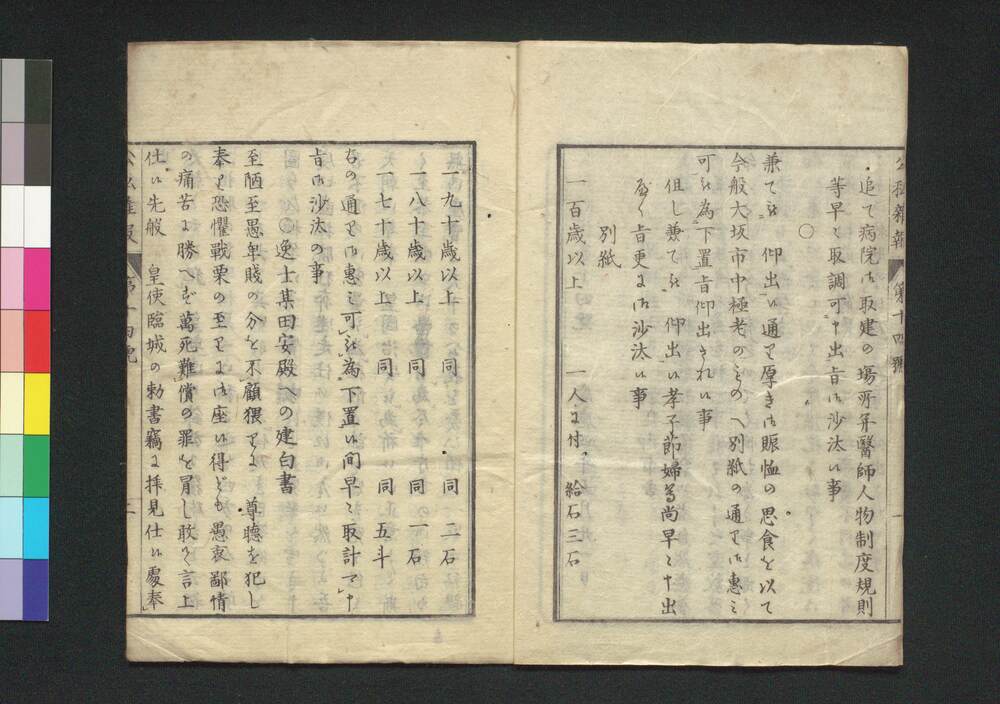 公私雜報 第十四號 一
追て病院御取建の場所并醫師人物制度規則
等早々取調可申出旨御沙汰候事
〇
兼て被 仰出候通り厚き御賑恤の思食を以て
今般大坂市中極老のものへ別紙の通り御惠ミ
可被為下置旨仰出され候事
但し兼て被 仰出候孝子節婦等尚早々申出
へく旨更に御沙汰候事
別紙
一百歳以上 一人に付 給石三石
一九十歳以上 同 同 二石
一八十歳以上 同 同 一石
一七十歳以上 同 同 五斗
右の通り御惠ミ可被為下置候間早々取計可申
旨御沙汰の事
〇逸士某田安殿への建白書
至陋至愚卑賤の分を不顧猥りに 尊聴を犯し
奉り恐懼戰栗の至りに御座候得とも愚衷鄙情
の痛苦に勝へす萬死難償の罪を冒し敢て言上
仕候先般 皇使臨城の勅書竊に拝見仕候處奉